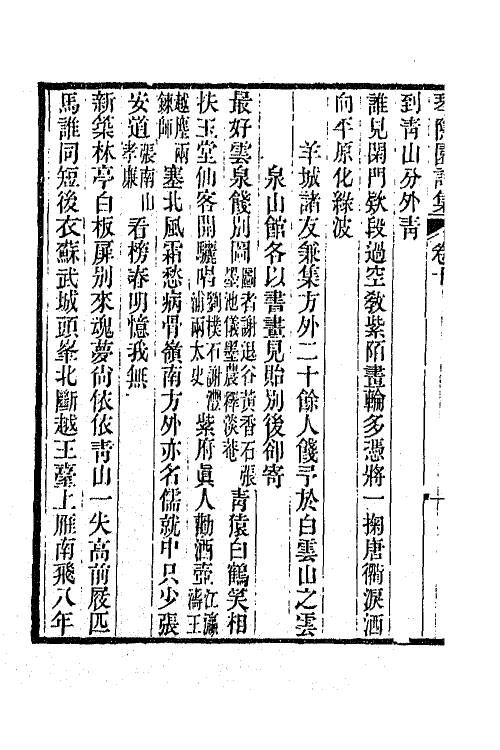 琴隱園詩集 卷十
到靑山分外靑
誰見閑門欵段過空敎紫陌畫輪多憑將一掬唐衢淚洒
向平原化綠波
羊城諸友兼集方外二十餘人餞予於白雲山之雲
泉山館各以書畫見貽別後卻寄
最好雲泉餞別圖圖者謝退谷黃香石張墨池儀墨農釋淡巷靑猿白鶴笑相
扶玉堂仙客開驪唱劉樸石謝澧浦兩太史紫府眞人勸酒壺江瀛濤王
越塵兩鍊師塞北風霜愁病骨嶺南方外亦名儒就中只少張
安道張南山孝廉看榜春明憶我無
新築林亭白板屝別來魂夢尙依依靑山一尖高前屐匹
馬誰同短後衣蘇武城頭峯北斷越王臺上雁南飛八年